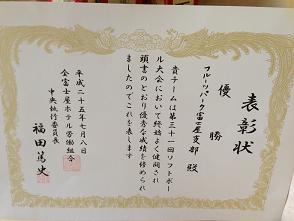 表彰状
優勝
フルーツパーク富士屋支部殿
貴チームは第三十一回ソフトボー
ル大会において終始よく健闘され
頭書のとおり優秀な成績を修められ
ましたのでこれを表します
平成二十五年七月八日
全富士屋ホテル労働組合
中央執行委員長
福田篤史